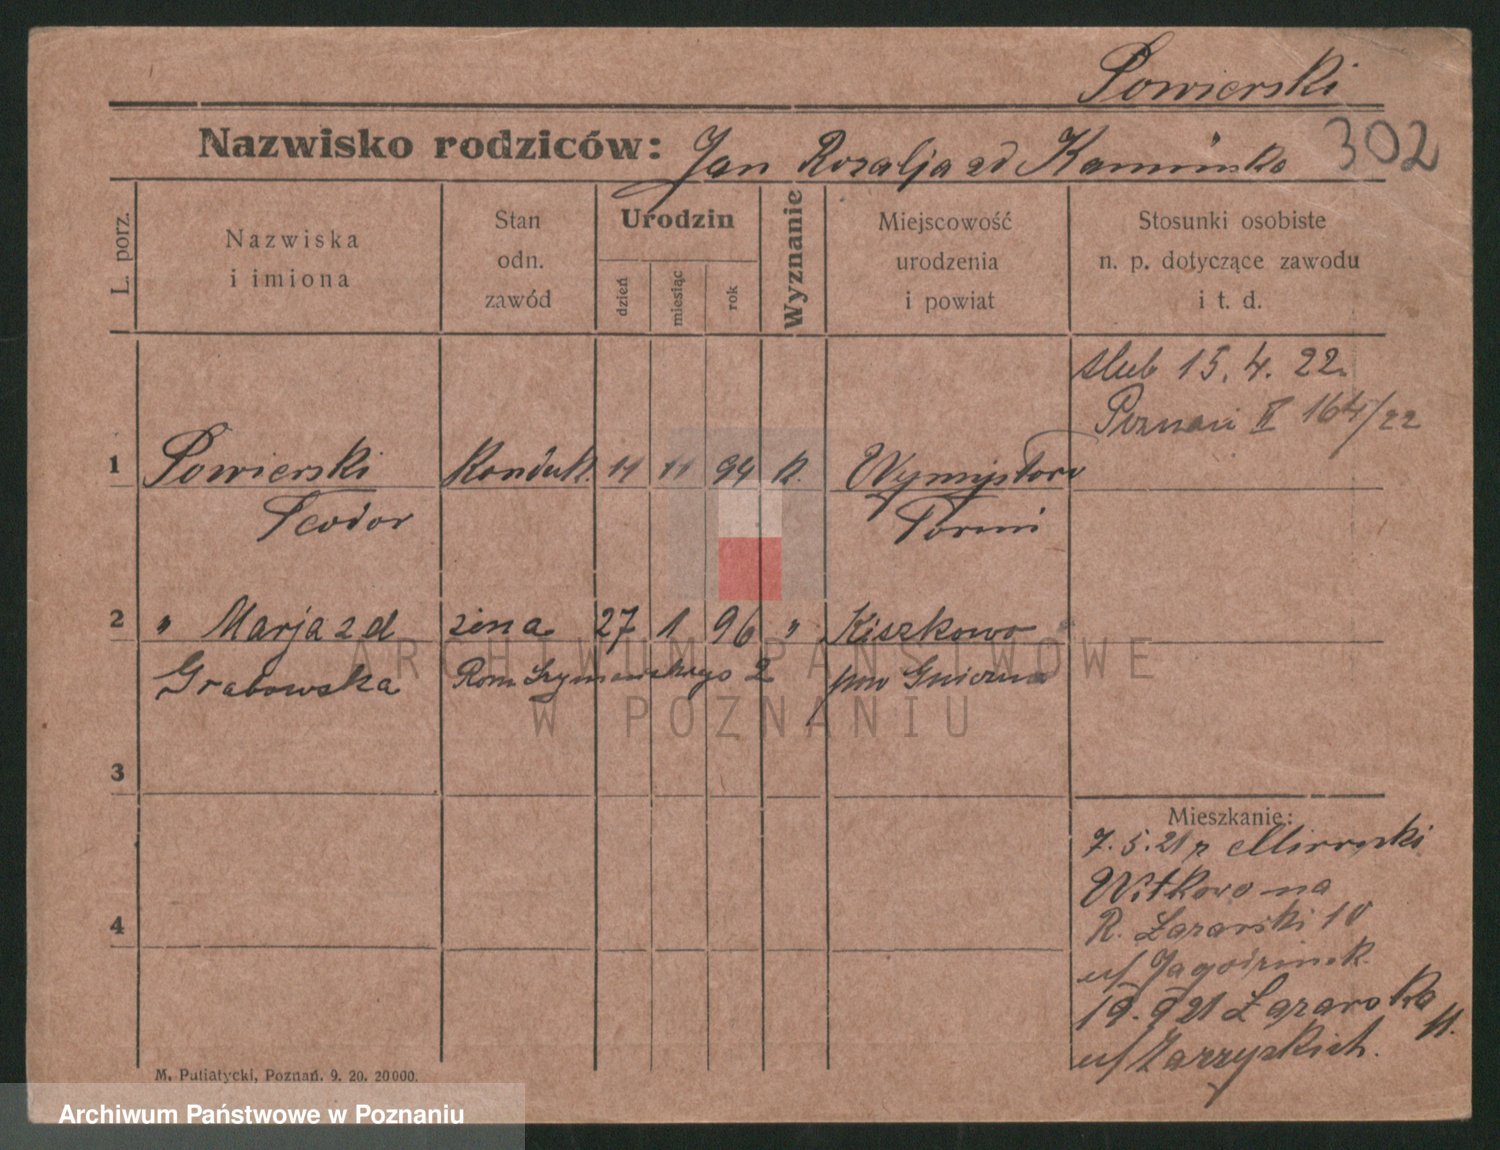 Powierski
Nazwisko rodziców: Jan Rozalja zd Kamińska 302
L. porz.
Nazwiska
i imiona
Stan
odn.
zawód
Urodzin
dzień
miesiąc
rok
Wyznanie
Miejscowość
urodzenia
i powiat
Stosunki osobiste
n. p. dotyczące zawodu
i t. d.
ślub 15. 4. 22.
Poznań II 164/22
1 Powierski Konduk. 11 11 94 k.
Teodor Toruń
2 " Marja zd żona 27 1 96 " Kiszkowo
Grabowska Rom. Szymańskiego 2 pow Gniezno
3
Mieszkanie:
7. 5. 21 z
Witkowo na
4 R. Łazarski 10
u/
19. 9 21 Łazarska 11.
u/
M. Putiatycki, Poznań. 9. 20. 20000.
ARCHIWUM PAŃSTWOWE
W POZNANIU
Archiwum Państwowe w Poznaniu